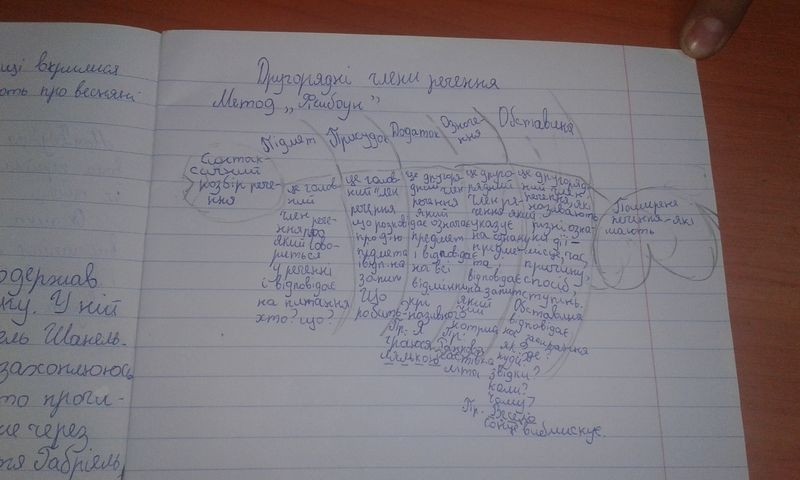 ці вкрилися
ють про весняні
одержав
ну. У ній
ель Шанель-
захоплююсь
то прогл-
ие через
тя Габріель
Другорядні члени речення
Метод „Фішбоун"
Підмет Присудок Додаток Означе-
ння Обставина
Синтак-
сичний
розбір рече-
ння
це голов-
ний
член
рече-
ння про
який гово-
риться
у реченні
і відповідає
на питання
хто? що?
це голов-
ний член
речення
що розповідає
про дію
підмета
і відп. на
запит.
Що
робить
це другоря
дний член
речення
який
означає
предмет
і відповідає
на всі
відмінки
окрі
називного
Пр: Я
граюся
лялькою
це друго
рядний
член ре-
чення який
указує
на ознаку
предме-
та
відповідає
на запит
який
чий
Пр:
літо
це другоряд-
ний член
речення, які
називають
різні озна-
ки дії –
місце, час,
причину,
спосіб
ступінь.
Обставина
відповідає
на запитання
як? де?
куди?
звідки?
коли?
чому?
Пр. Весело
сонце виблискує.
Поширені
речення – які
мають